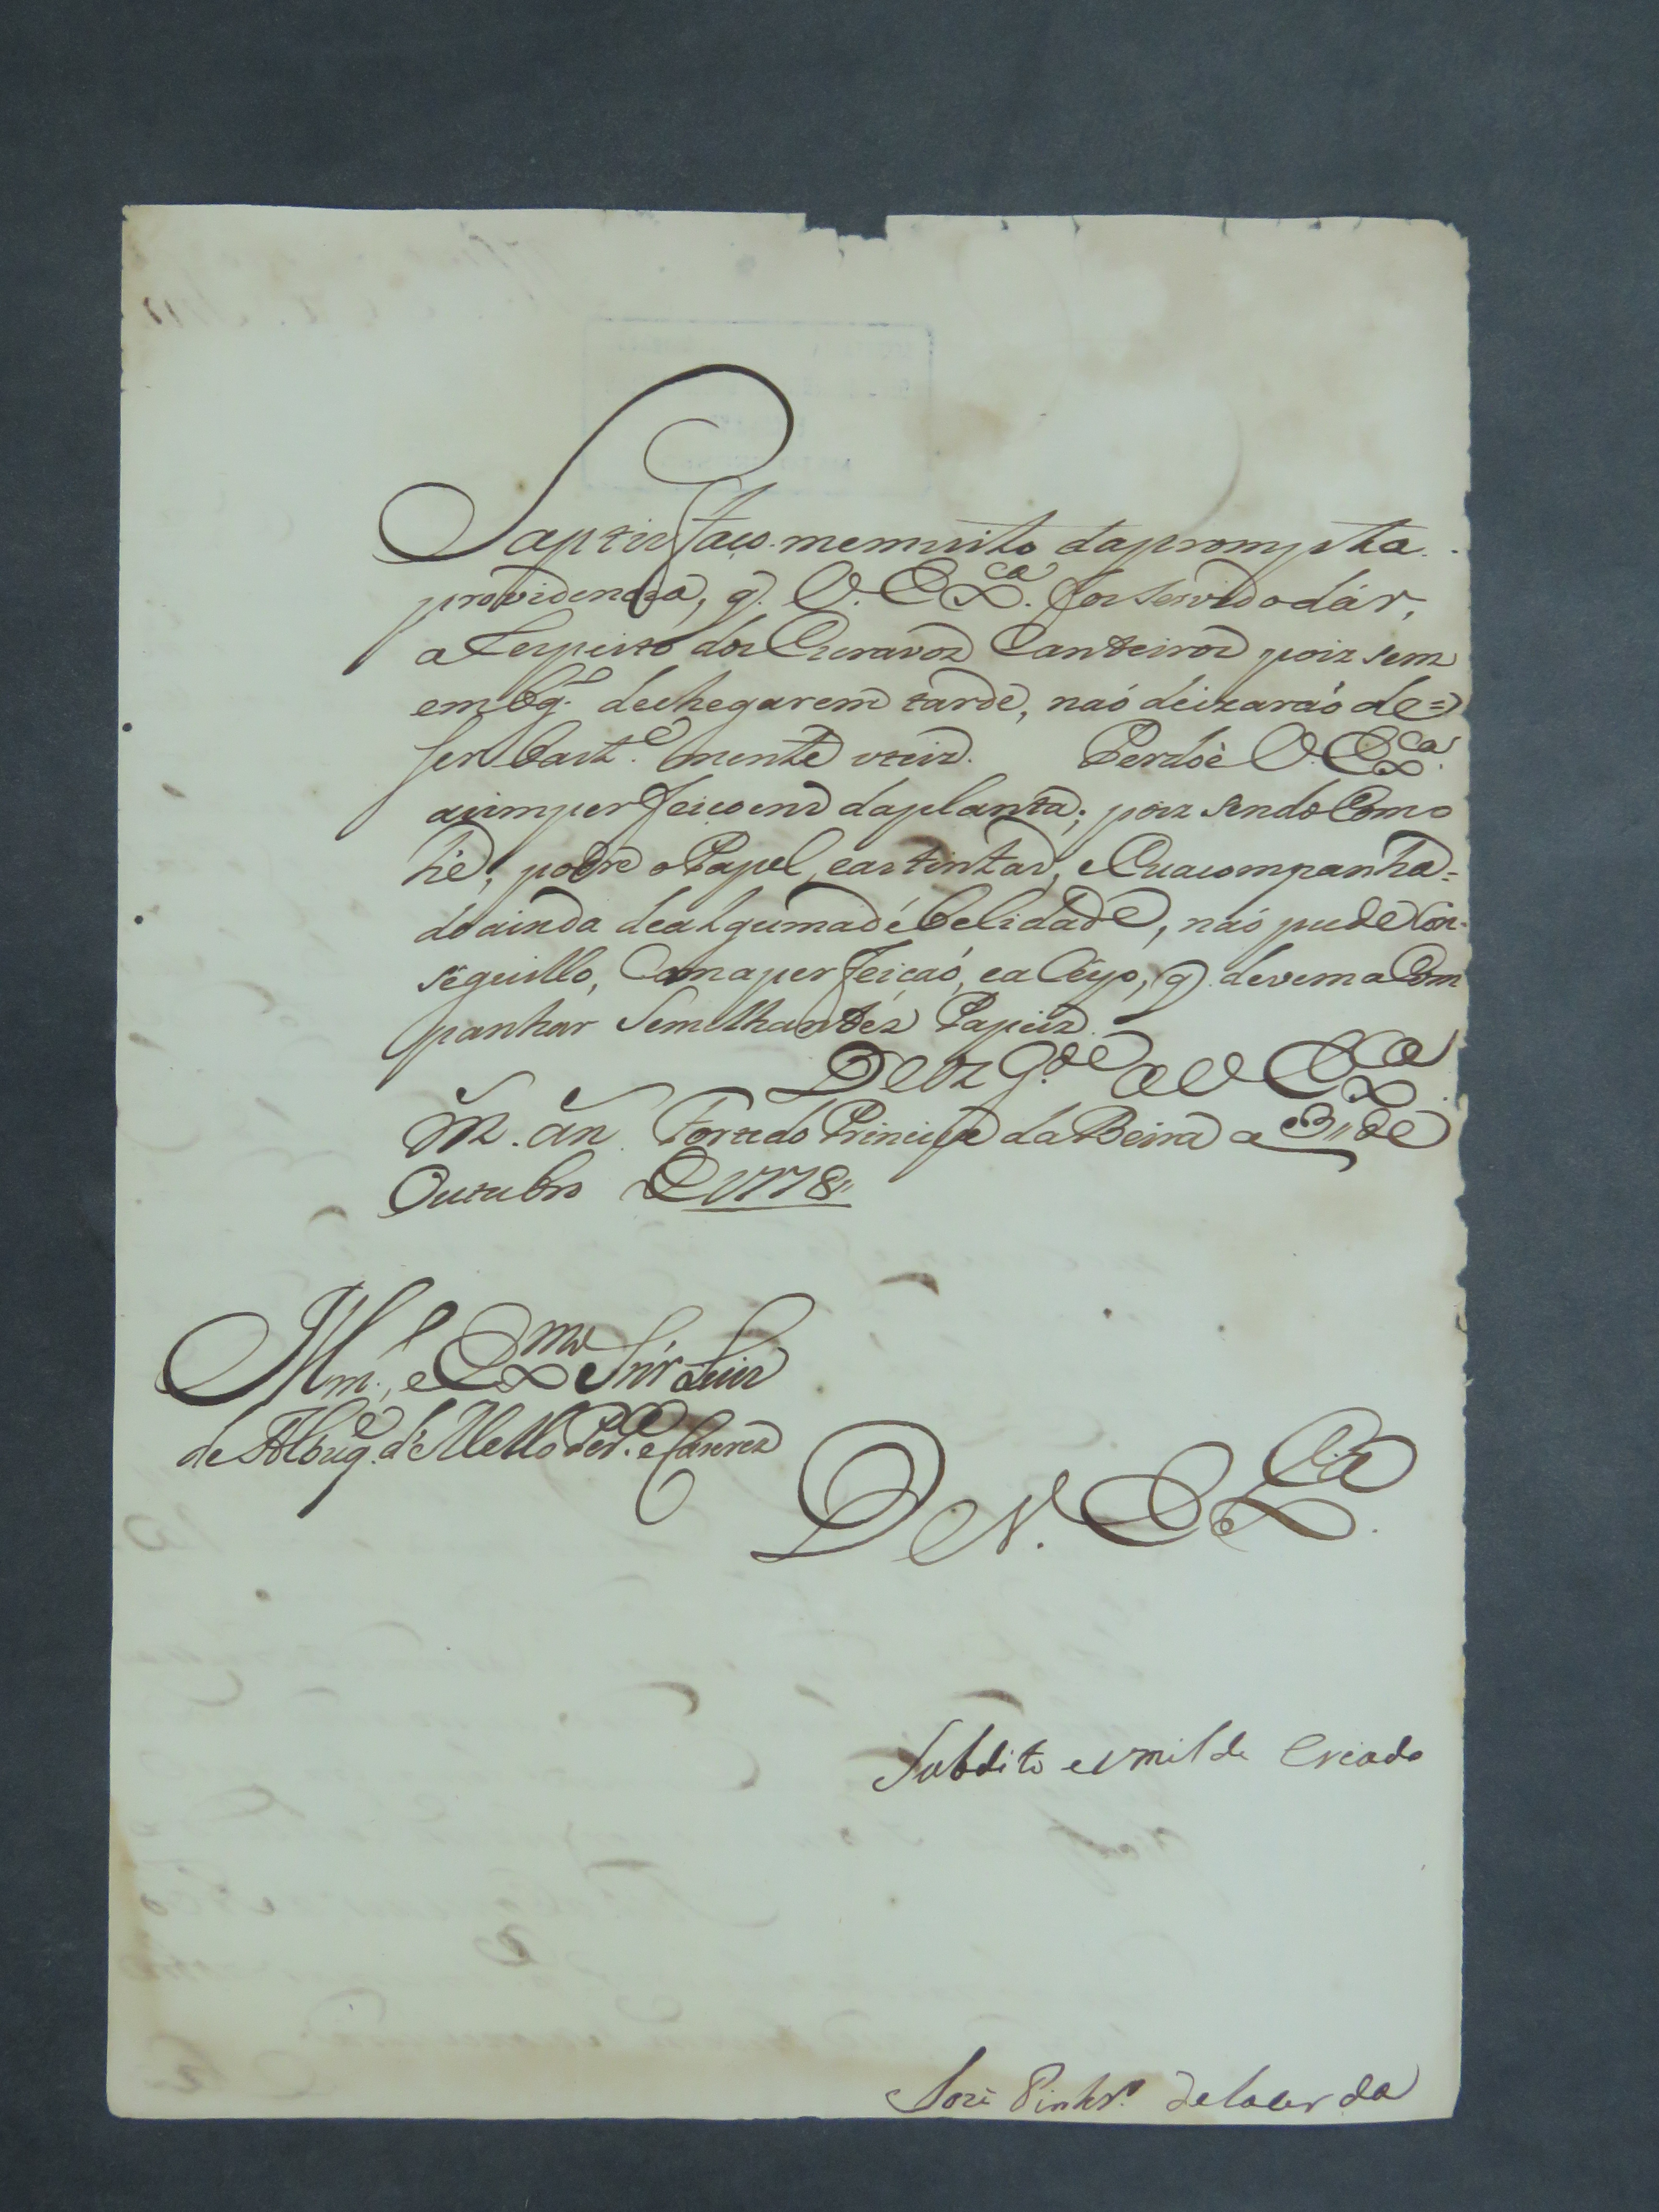 Saptisfaço-me muito da prompta
providencia, q. V. Ex.ca foi servido dár,
a Respeito dos Escravos Canteiros pois sem
embg.o de chegarem tarde, naó deixaráo de=
ser bast.e mente uteis. Perdoè V. Ex.ca
as imperfeicoens da planta; pois sendo Como
hé, podre o Papel, e as tintas, e Eu acompanha=
do ainda de alguma débelidade, naó pude Con-
seguillo, Com a perfeicaó, e a Ceyo, q devem aCom
panhar Semilhantés Papeis.
Deos g.de a V Ex.ca
m. an. Forte do Principe da Beira a 3 de
Outubro de 1778
Illm.o, e Ex.mo Snr Luis
de Albuq.e d' Mello Per.a e Caseres
De V. Ex.ca
Subdito e vmilde Criado
Jozé Pinhr.o de Lacerda